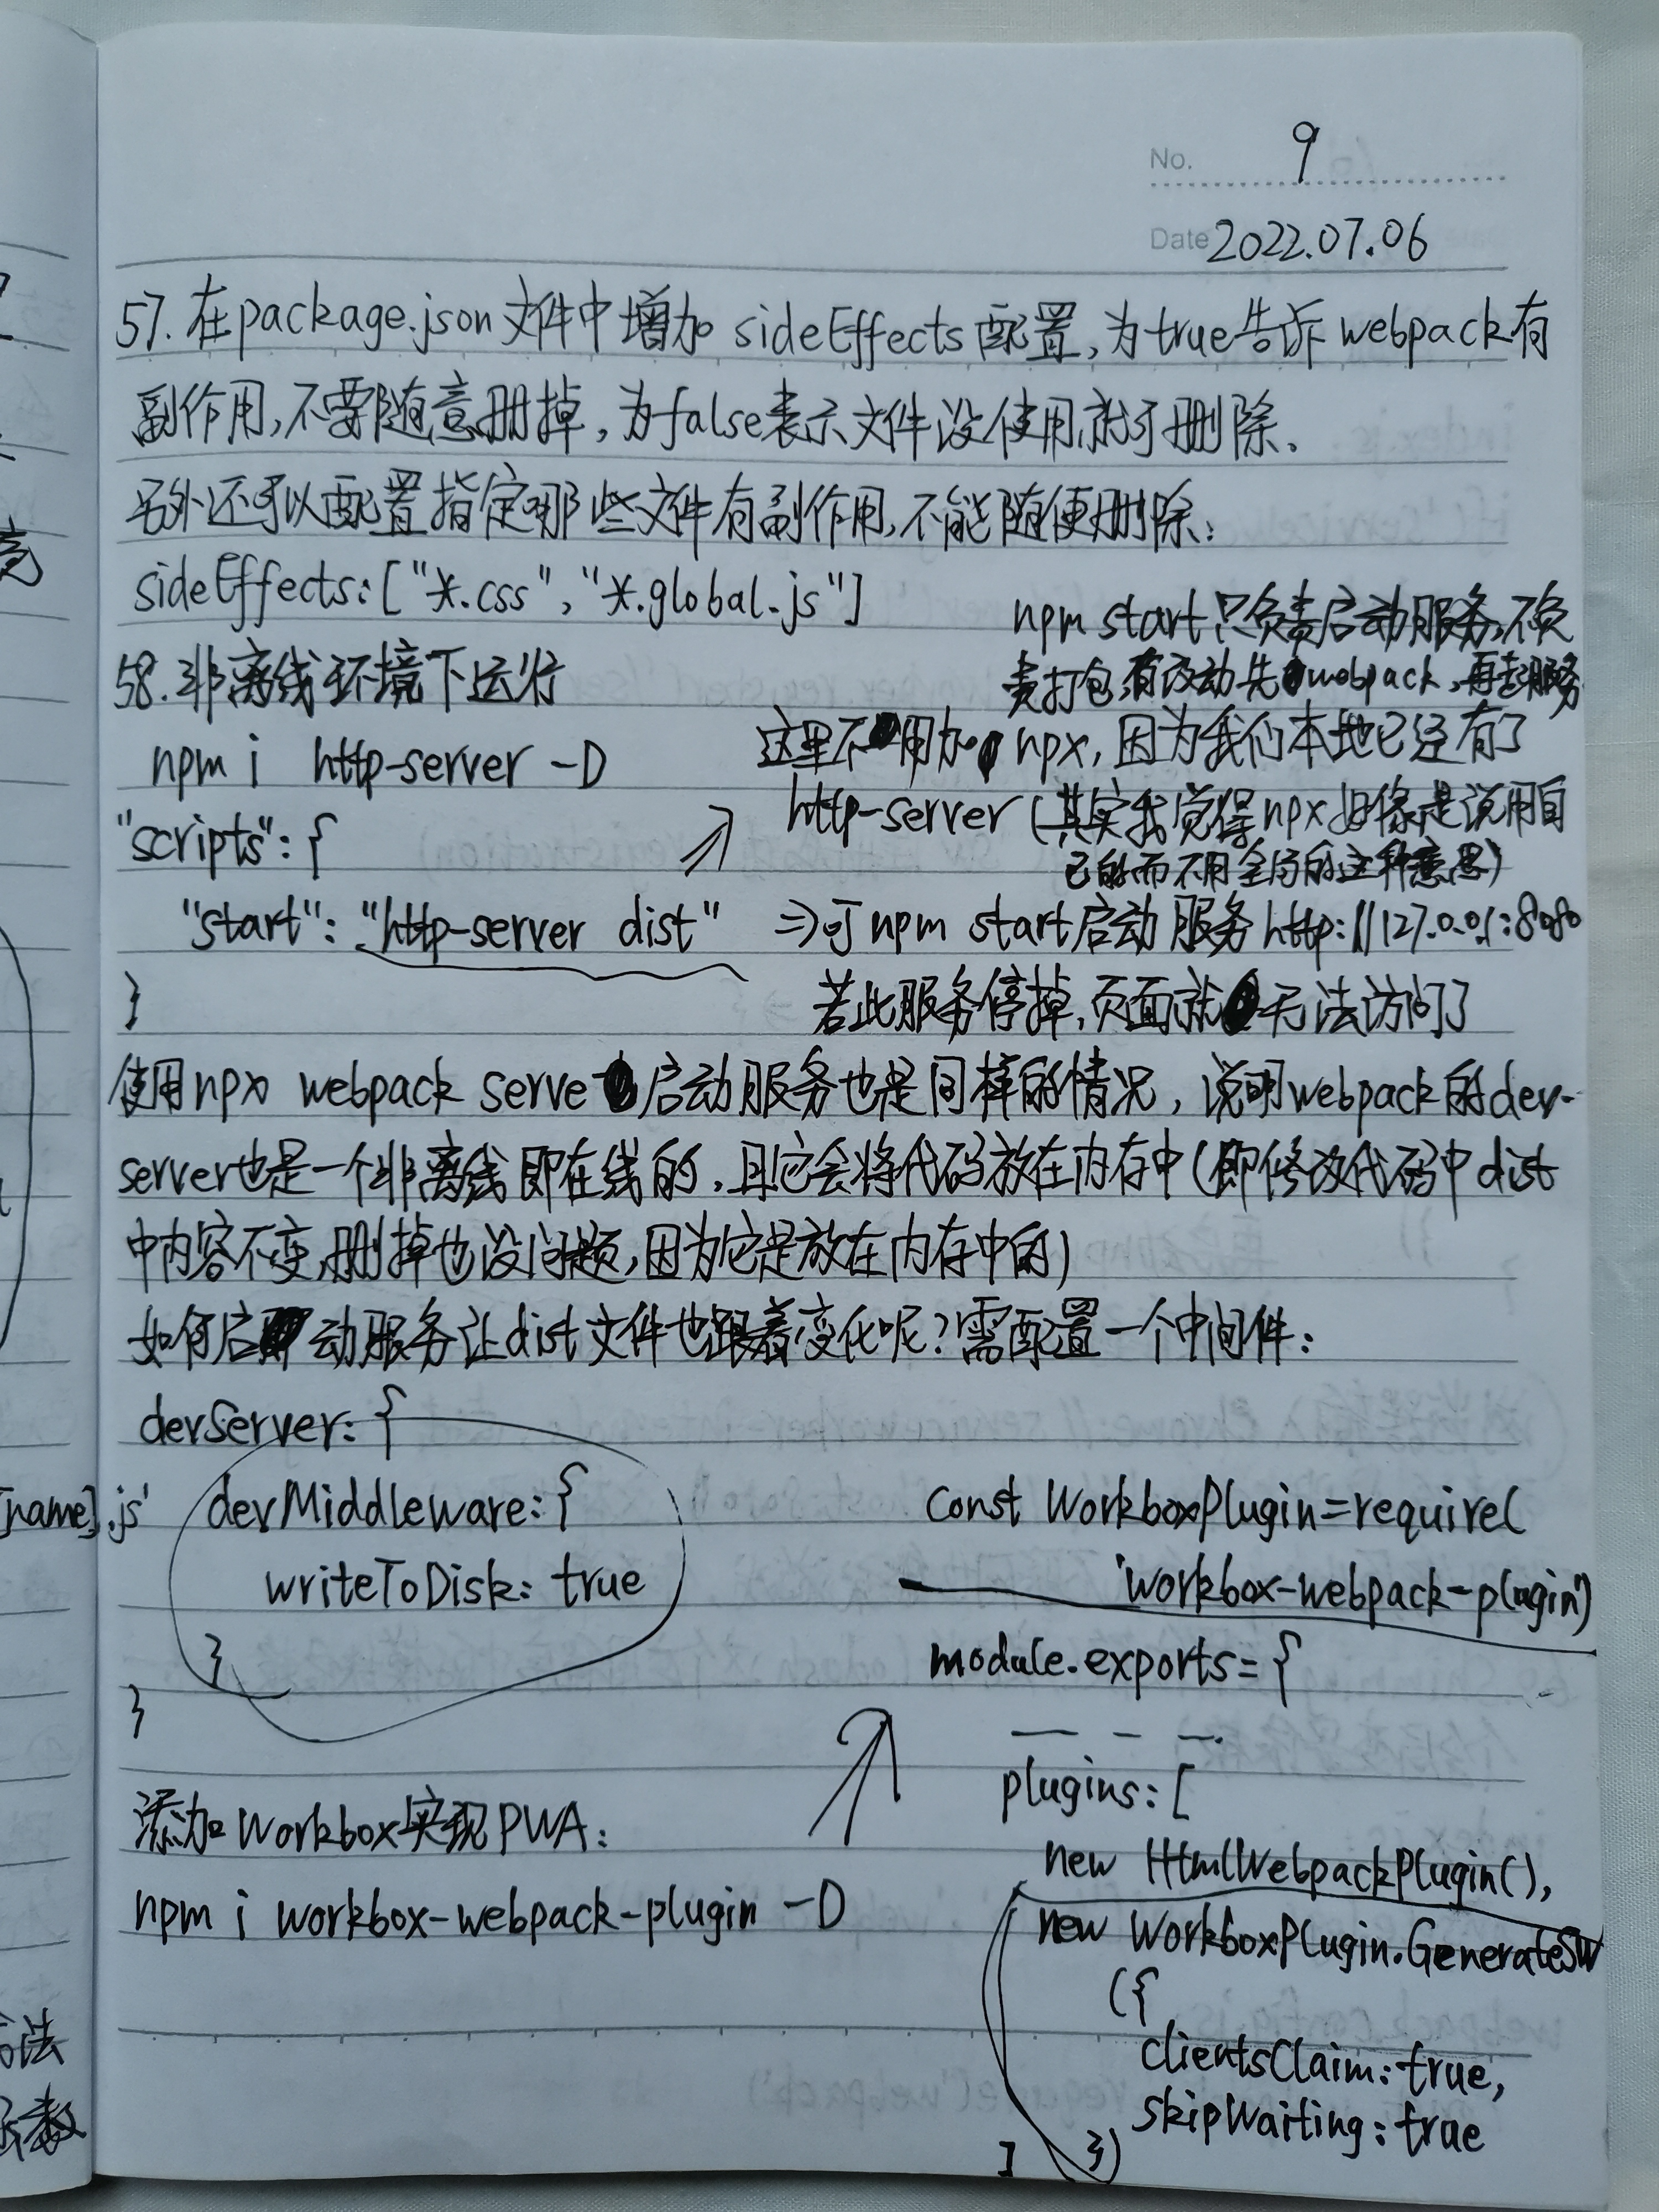 No. 9
Date 2022.07.06
57.在package.json文件中增加 sideEffects配置,为true告诉webpack有
副作用,不要随意删掉,为false表示文件没使用就可删除.
另外还可以配置指定哪些文件有副作用,不能随便删除:
sideEffects:["*.css","*.global.js"]
58.非离线环境下运行
npm i http-server -D
"scripts":{
"start":"http-server dist"
}
npm start只负责启动服务,不负
责打包,有改动先webpack,再起服务
这里不用加npx,因为我们本地已经有了
http-server(其实我觉得npx好像是说用自
己的而不用全局的这种意思)
⇒可npm start启动服务http://127.0.0.1:8080
若此服务停掉,页面就无法访问了
使用npx webpack serve启动服务也是同样的情况,说明webpack的dev-
server也是一个非离线即在线的,且它会将代码放在内存中(即修改代码中dist
中内容不变,删掉也没问题,因为它是放在内存中的)
如何启动服务让dist文件也跟着变化呢?需配置一个中间件:
devServer:{
devMiddleware:{
writeToDisk:true
}
}
添加Workbox实现PWA:
npm i workbox-webpack-plugin -D
const WorkboxPlugin=require(
'workbox-webpack-plugin')
module.exports={
plugins:[
new HtmlWebpackPlugin(),
new WorkboxPlugin.GenerateSW
({
clientsClaim:true,
skipWaiting:true
})
]
[name].js'